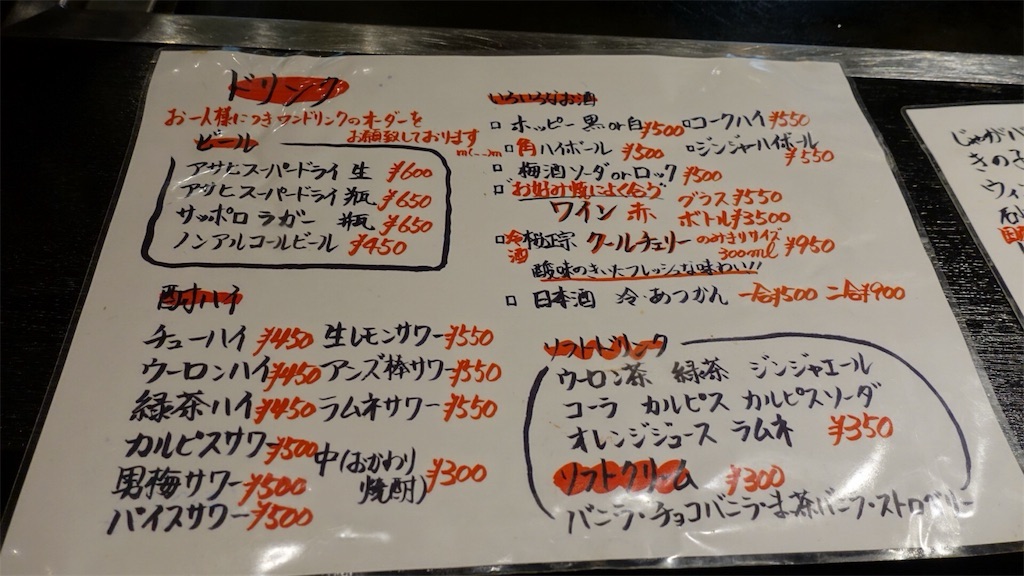 ドリンク
お一人様につきワンドリンクのオーダーを
お願い致しております
m(__)m
ビール
アサヒスーパードライ 生 ¥600
アサヒスーパードライ 瓶 ¥650
サッポロ ラガー 瓶 ¥650
ノンアルコールビール ¥450
酎ハイ
チューハイ ¥450 生レモンサワー ¥550
ウーロンハイ ¥450 アンズ棒サワー ¥550
緑茶ハイ ¥450 ラムネサワー ¥550
カルピスサワー ¥500
男梅サワー ¥500
バイスサワー ¥500
中(おかわり焼酎) ¥300
いろいろなお酒
ホッピー 黒or白 ¥500 コークハイ ¥550
角ハイボール ¥500 ジンジャーハイボール ¥550
梅酒ソーダorロック ¥500
お好み焼によく合う
ワイン 赤 グラス ¥550
ボトル ¥3500
冷酒 桜正宗 クールチェリー のみきりサイズ 300ml ¥950
酸味のきいたフレッシュな味わい!!
日本酒 冷・あつかん 一合¥500 二合¥900
ソフトドリンク
ウーロン茶 緑茶 ジンジャエール
コーラ カルピス カルピスソーダ
オレンジジュース ラムネ ¥350
ソフトクリーム ¥300
バニラ・チョコバニラ・ま茶バニラ・ストロベリー
じゃがバ
きの子
ウィン